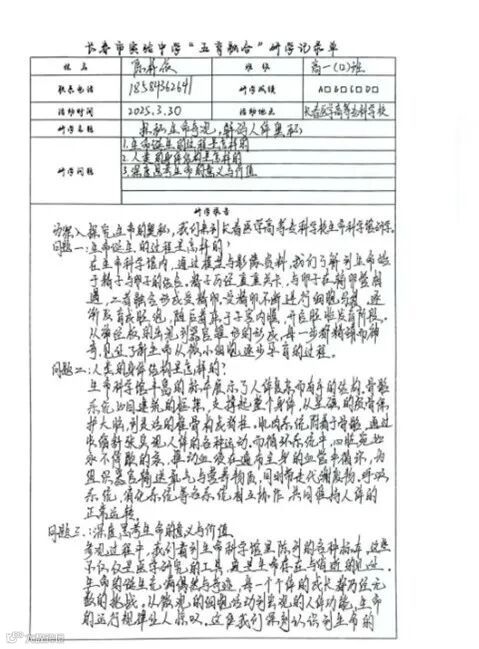 长春市实验中学“五育融合”研学记录单
姓名 班级 高一(12)班
联系电话 18584362641 研学成绩 A□B□C□D□
活动时间 2025.3.30 活动地点 长春医学高等专科学校
研学名称 探秘生命奇观,解码人体奥秘
研学问题
1.生命诞生的过程是怎样的
2.人类的身体结构是怎样的
3.深度思考生命的意义与价值
研学报告
探究生命的奥秘,我们来到长春医学高等专科学校生命科学馆研学。
问题一:生命诞生的过程是怎样的?
在生命科学馆内,通过模型与影像资料,我们了解到生命始
于精子与卵子的结合。精子历经重重关卡,与卵子在输卵管相
遇,二者融合形成受精卵。受精卵不断进行细胞分裂,逐
渐发育成胚泡,随后着床于子宫内膜,开启胚胎发育阶段。
从神经板的出现到器官雏形的形成,每一步都精确而神
奇,见证了新生命从微小细胞逐步孕育的过程。
问题二:人类的身体结构是怎样的?
生命科学馆丰富的标本展示了人体复杂而有序的结构。骨骼
系统如同建筑的框架,支撑起整个身体,从坚硬的颅骨保
护大脑,到灵活的脊椎骨构成脊柱。肌肉系统附着于骨骼,通过
收缩舒张实现人体的各种运动。而循环系统中,心脏宛如
永不停歇的泵,推动血液在遍布全身的血管中循环,为
组织器官输送氧气与营养物质,同时带走代谢废物。呼吸
系统、消化系统等各系统相互协作,共同维持人体的
正常运转。
问题三:深度思考生命的意义与价值
参观过程中,我们看到生命科学馆里陈列的各种标本,这些
不仅仅是医学研究的工具,更是生命存在与消逝的见证。
生命的诞生充满偶然与奇迹,每一个个体的成长都历经无
数的挑战。从微观的细胞活动到宏观的人体功能,生命
的运行规律令人惊叹。这使我们深刻认识到生命的